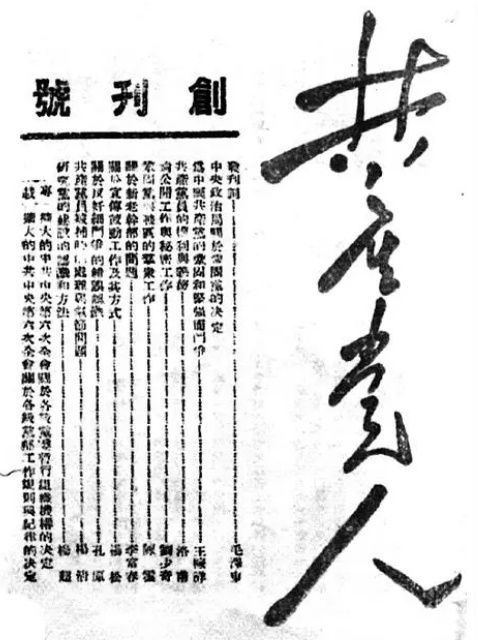 共产党人
創刊號
發刊詞 毛澤東
中央政治局關於鞏固黨的决定
爲中國共產黨的鞏固和堅强而鬥爭 王稼祥
共產黨員的權利與義務 洛甫
論公開工作與秘密工作 劉少奇
鞏固黨與戰區的羣衆工作 陳雲
關於新老幹部的問題 李富春
關於宣傳鼓動工作及其方式 楊松
關於反奸細鬥爭的錯誤 孔原
共產黨員被捕時 處理與氣節問題 楊
研究黨的建設的認識和方法 楊超
專載
擴大的中共中央第六次全會關於各級黨部暫行組織機構的决定
擴大的中共中央第六次全會關於各級黨部工作規則與紀律的决定